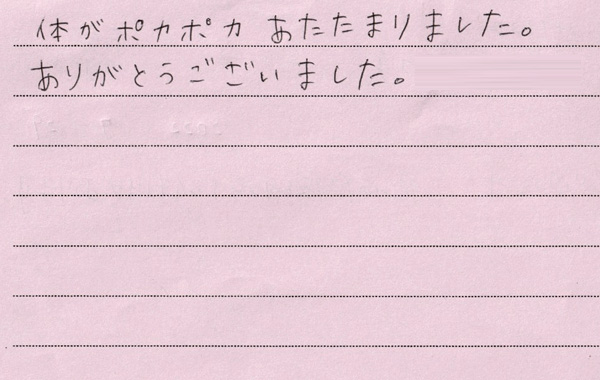 体がポカポカ あたたまりました。
ありがとうございました。